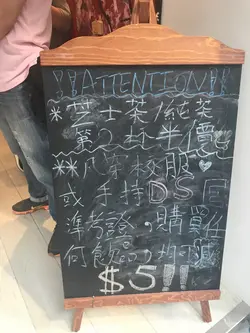 !!ATTENTION!!
*芝士茶/純茶
第2杯半價
**凡穿校服♥
或手持DSE
準考證,購買任
何飲品,均可減
$5!!